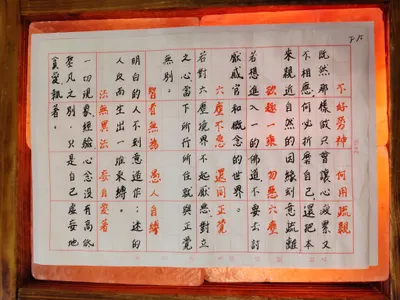 不好勞神 何用疏親
既然那樣做只會讓心疲累又
不相應,何必折磨自己,還把本
來親近自然的因緣刻意疏離
欲趣一乘 勿惡六塵
若想進入一的佛道不要去討
厭感官和概念的世界。
六塵不惡 還同正覺
若對六塵境界不起厭惡對立
之心,當下所行所住就與正覺
無別。
智者無為 愚人自縛
明白的人不刻意造作;迷的
人反而生出一堆束縛。
法無異法 妄自愛著
一切現象、經驗、心念沒有高低
聖凡之別,只是自己虛妄地
貪愛執著。